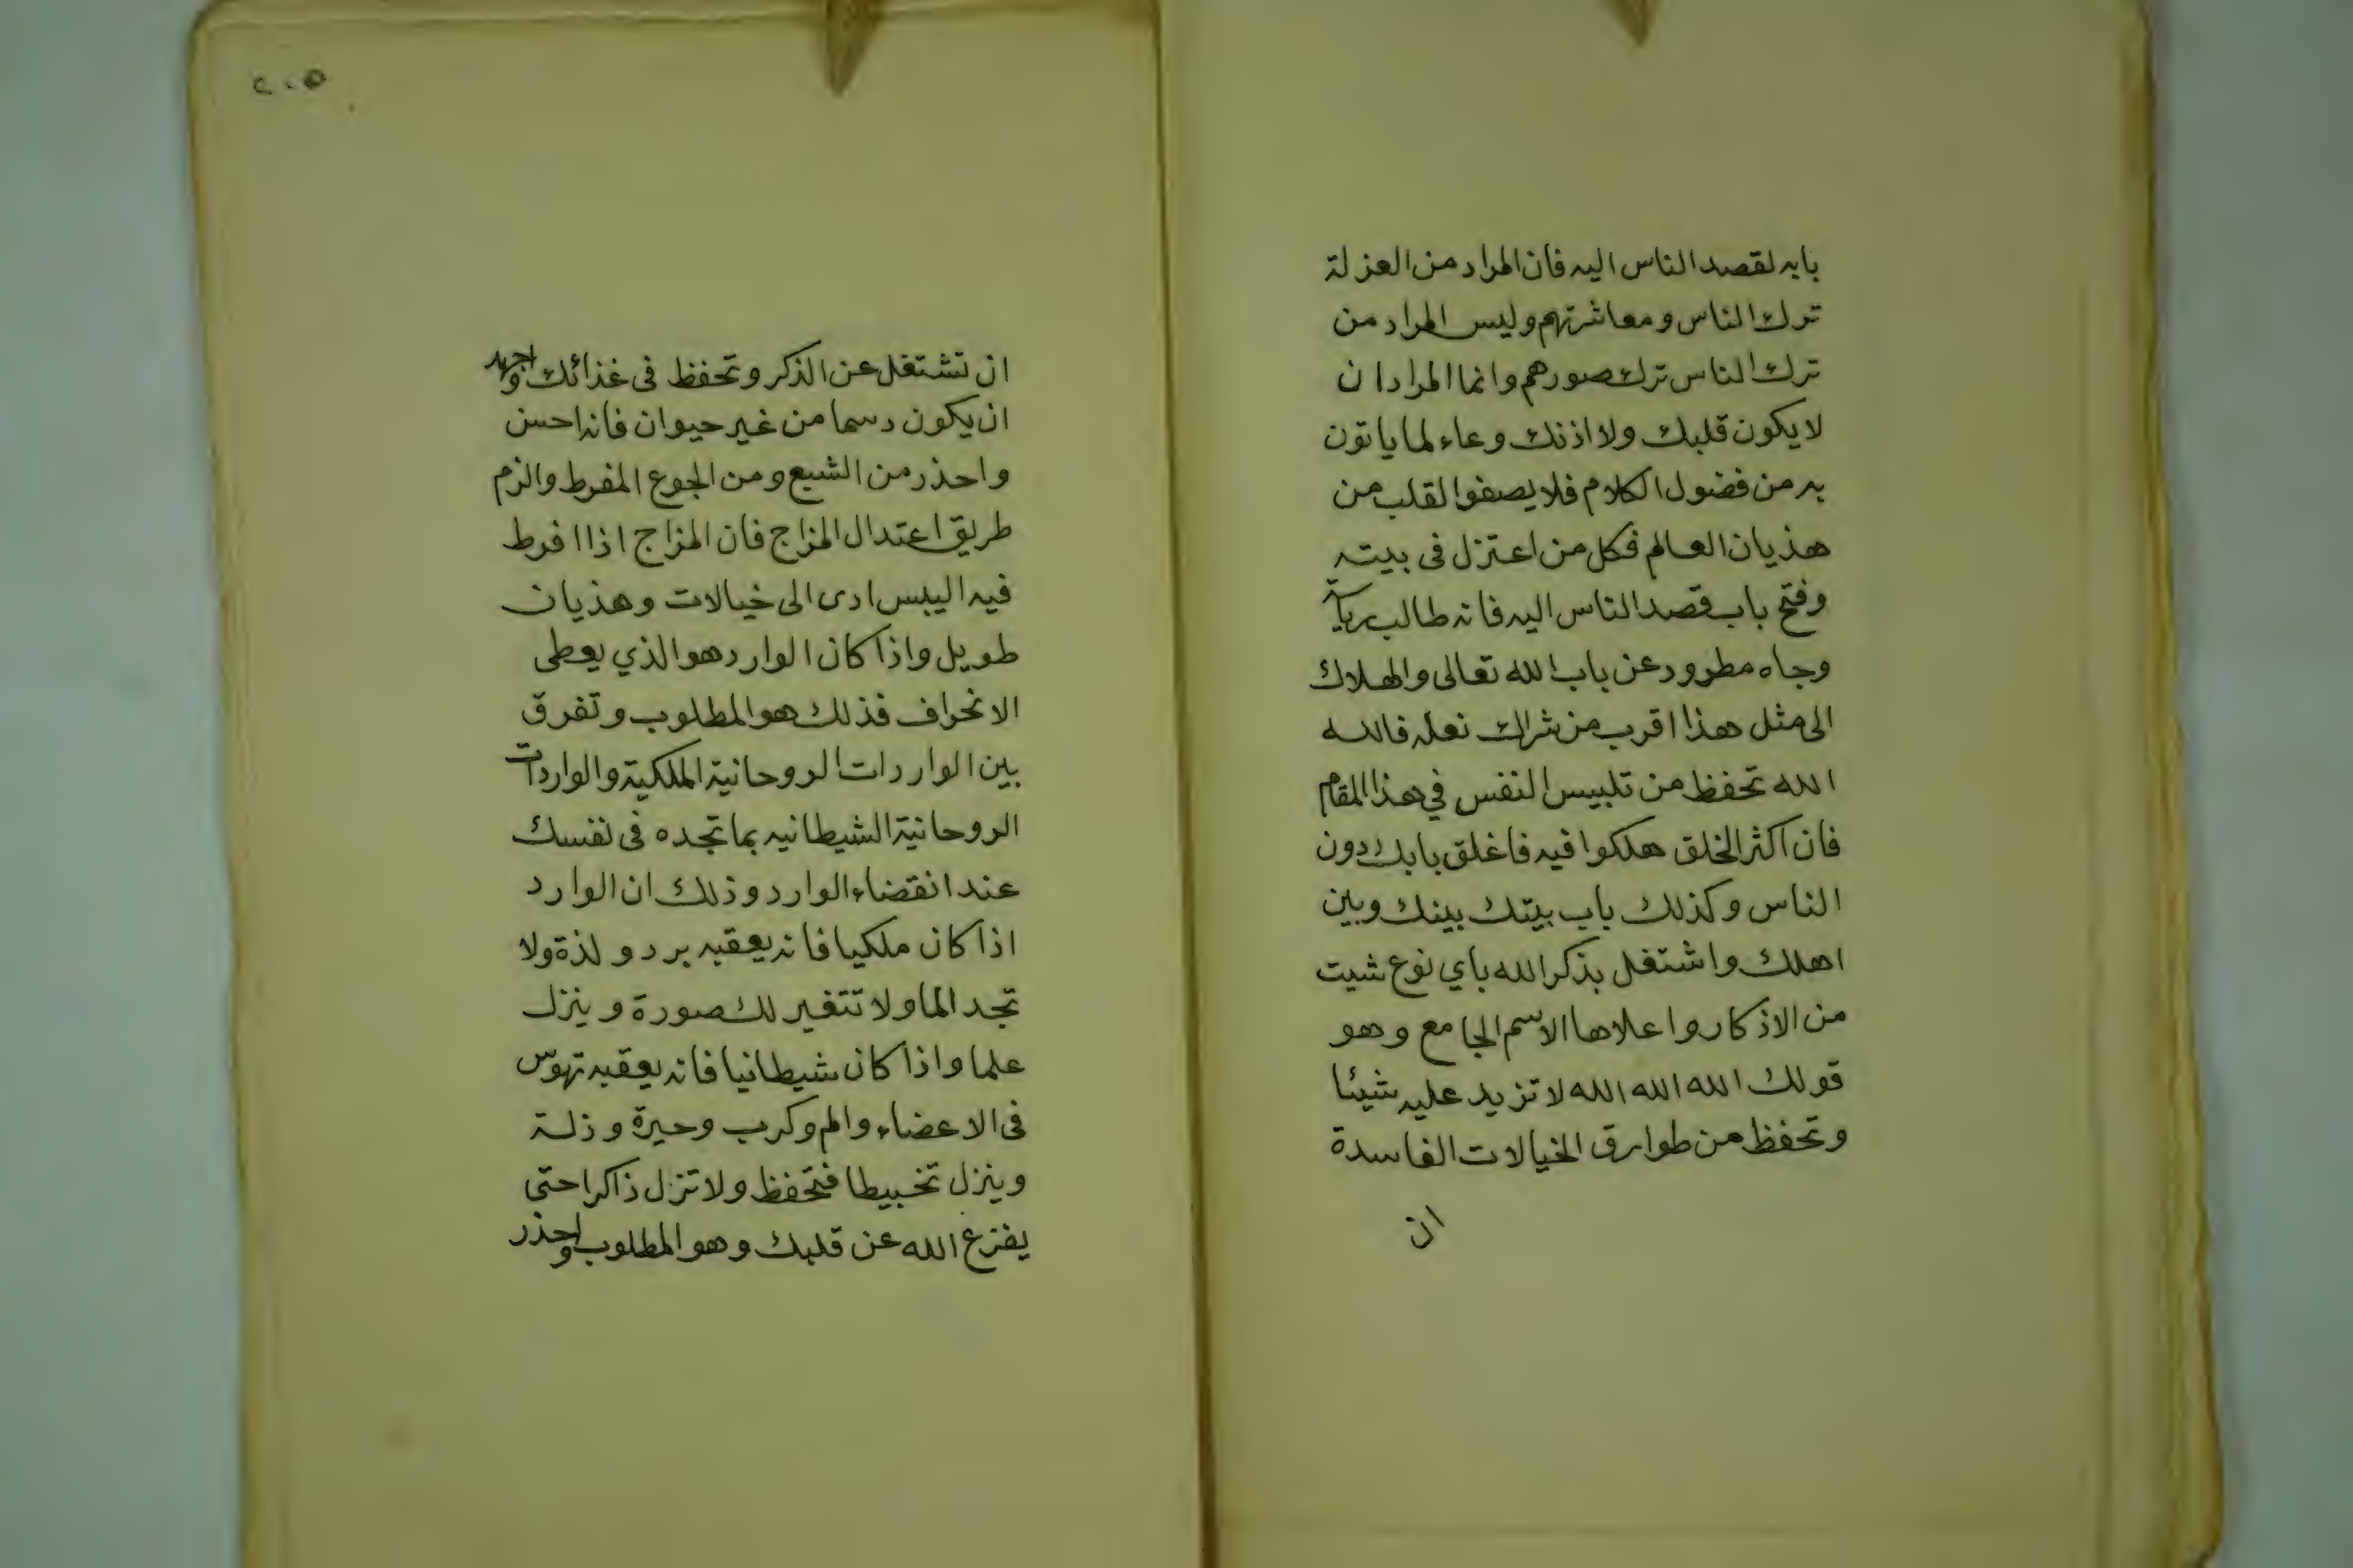 بابه لقصد الناس اليه فان المراد من العزلة
ترك الناس ومعاشرتهم وليس المراد من
ترك الناس ترك صورهم وانما المراد ان
لا يكون قلبك ولا اذنك وعاء لما ياتون
به من فضول الكلام فلا يصفوا لقلب من
هذيان العالم فكل من اعتزل فى بيته
وفتح باب قصد الناس اليه فانه طالب رياسة
وجاه مطرود عن باب الله تعالى والهلاك
الى مثل هذا اقرب من شراك نعله فالله
الله تحفظ من تلبيس النفس في هذا المقام
فان اكثر الخلق هلكوا فيه فاغلق بابك دون
الناس وكذلك باب بيتك بينك وبين
اهلك واشتغل بذكر الله باي نوع شيت
من الاذكار واعلاها الاسم الجامع وهو
قولك الله الله الله لا تزيد عليه شيئا
وتحفظ من طوارق الخيالات الفاسدة
ان
٢٠٥
ان تشتغل عن الذكر وتحفظ فى غذائك واجهد
ان يكون دسما من غير حيوان فانه احسن
واحذر من الشبع ومن الجوع المفرط والزم
طريق اعتدال المزاج فان المزاج اذا افرط
فيه اليبس ادى الى خيالات وهذيان
طويل واذا كان الوارد هو الذي يعطى
الانحراف فذلك هو المطلوب وتفرق
بين الواردات الروحانية الملكية والواردات
الروحانية الشيطانيه بما تجده فى نفسك
عند انقضاء الوارد وذلك ان الوارد
اذا كان ملكيا فانه يعقبه برد ولذة ولا
تجد الما ولا تتغير لك صورة وينزل
علما واذا كان شيطانيا فانه يعقبه تهوّس
فى الاعضاء والم وكرب وحيرة وذلة
وينزل تخبيطا فتحفظ ولا تزل ذاكرا حتى
يفزع الله عن قلبك وهو المطلوب واحذر